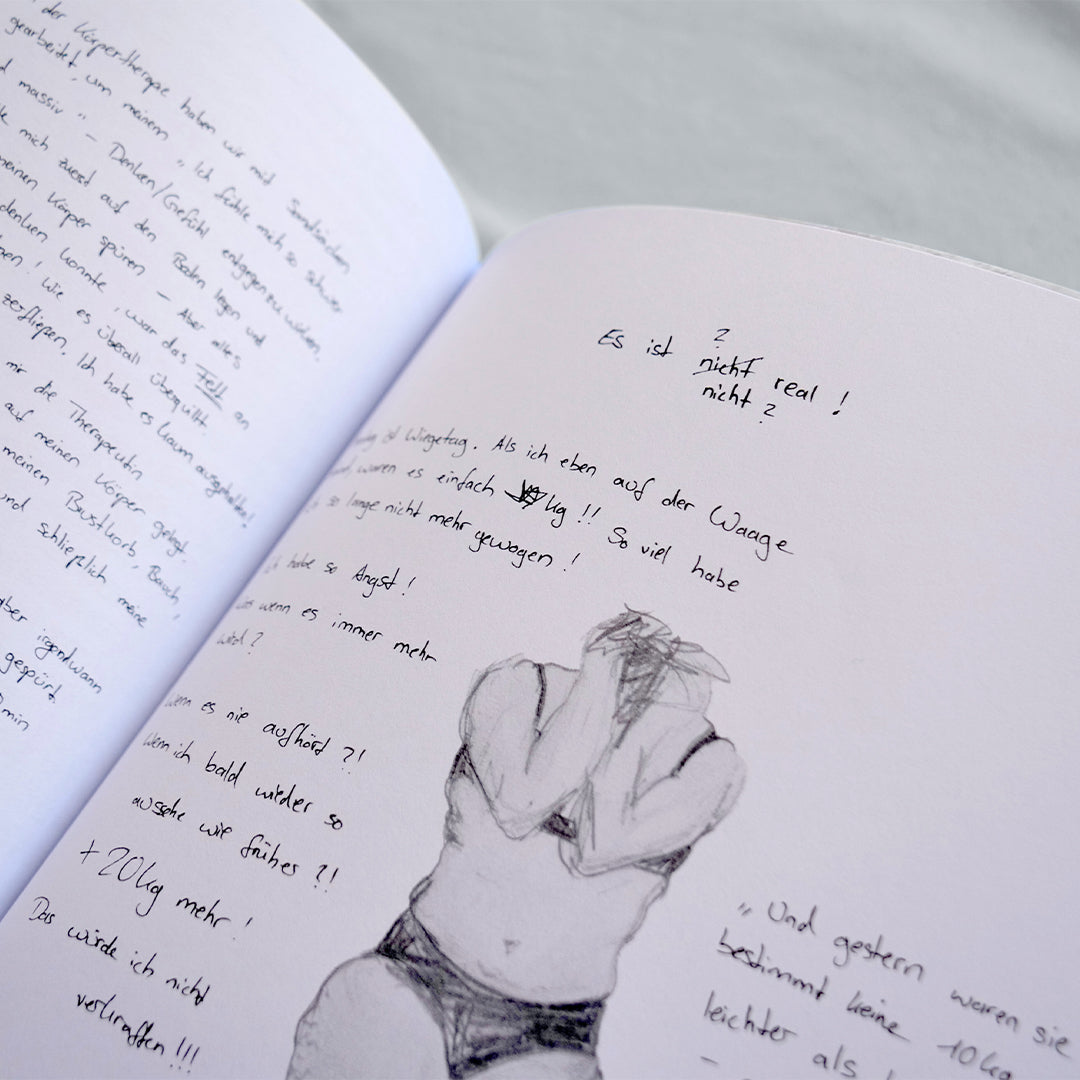 der Körpertherapie haben wir mit Sandsäcken
gearbeitet, um meinem „Ich fühle mich so schwer
massiv" – Denken/Gefühl entgegenzuwirken.
mich zuerst auf den Boden legen und
meinen Körper spüren – Aber alles
denken konnte, war das Fett an
! Wie es überall überquillt.
zerfließen. Ich habe es kaum ausgehalten!
mir die Therapeutin
auf meinen Körper gelegt.
meinen Brustkorb, Bauch,
und schließlich meine
aber irgendwann
gespürt.
min
?
Es ist nicht real !
nicht ?
ist Wiegetag. Als ich eben auf der Waage
waren es einfach kg !! So viel habe
ich so lange nicht mehr gewogen !
Ich habe so Angst !
Was wenn es immer mehr
wird ?
Wenn es nie aufhört ?!
Wenn ich bald wieder so
aussehe wie früher ?!
+ 20kg mehr !
Das würde ich nicht
verkraften !!!
„Und gestern waren sie
bestimmt keine 10kg
leichter als
–